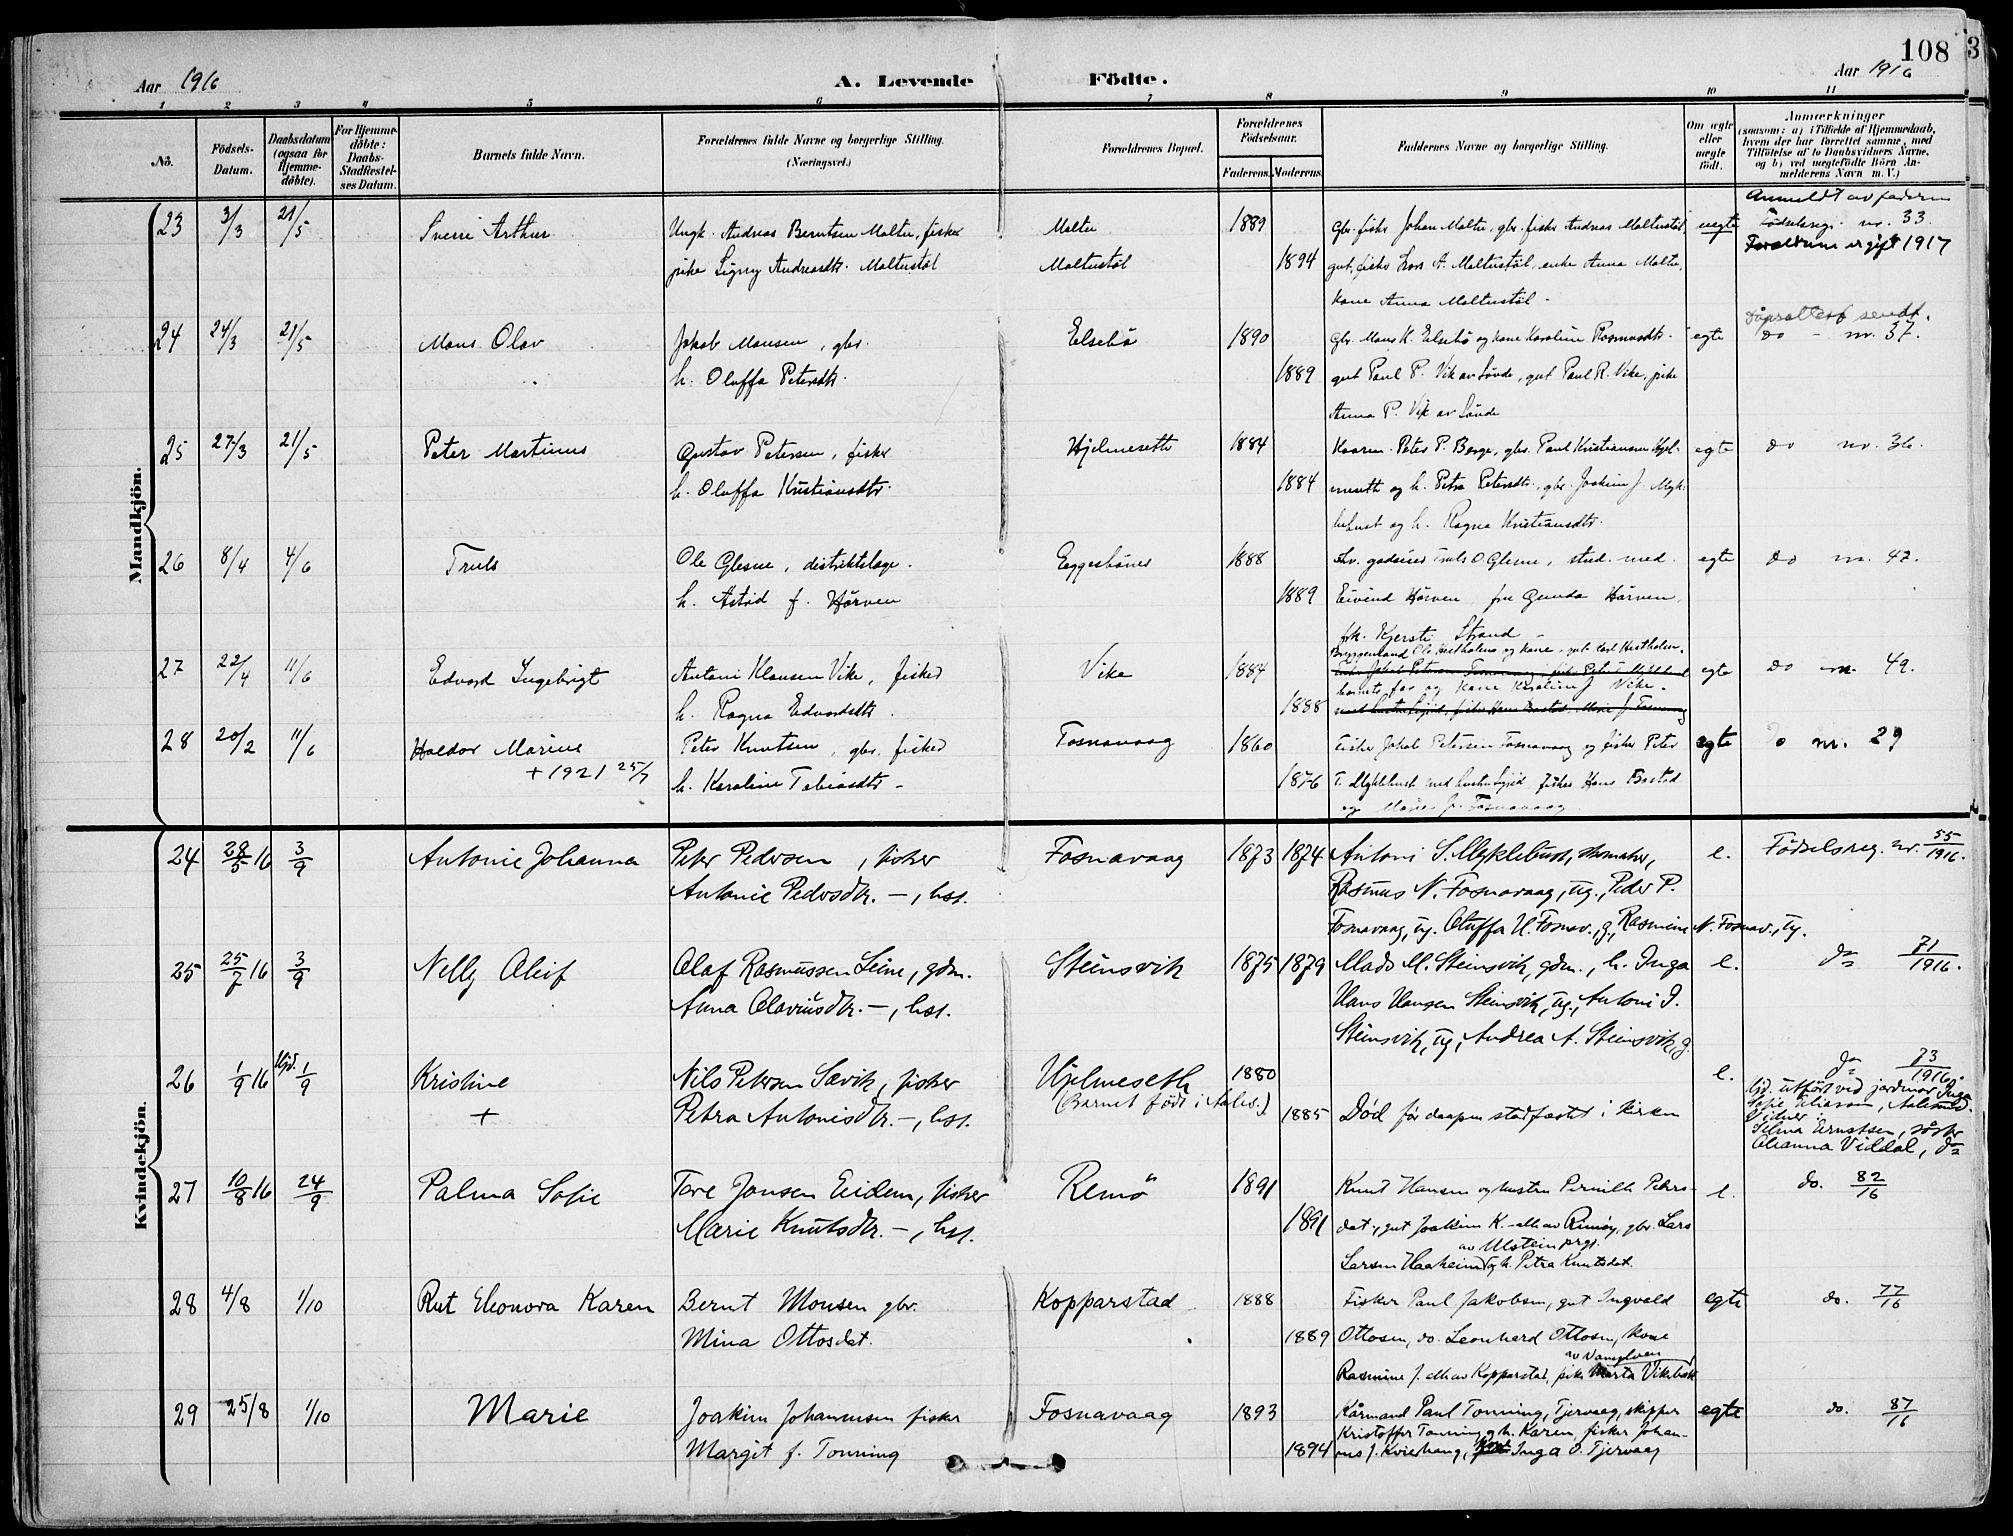 108
3
Aar 1916
A. Levende
Födte.
Aar 1916
1 2 3 4 5 6 7 8 9 10 11
No.
Födsels-
Datum.
Daabsdatum
(ogsaa for
Hjemme-
döbte).
For Hjemme-
döbte:
Daabs-
Stadfæstel-
ses Datum.
Barnets fulde Navn.
Forældrenes fulde Navne og borgerlige Stilling.
(Næringsvei.)
Forældrenes Bopæl.
Forældrenes
Födselsaar.
Faderens.
Moderens.
Faddernes Navne og borgerlige Stilling.
Om ægte
eller
uægte
födt.
Anmærkninger
(saasom: a) i Tilfælde af Hjemmedaab,
hvem der har forrettet samme, med
Tilföielse af to Daabsvidners Navne,
og b) ved uægtefödte Börn An-
melderens Navn m. V.)
Mandkjön.
Anmeldt av faderen
23 3/3 21/5 Sverre Arthur Ungk. Andreas Berntsen Moltu, fisker Moltu 1889 gbr. fisker Johan Moltu, gbr. fisker Andreas Moltustøl, uegte Fødselsreg. nr. 33.
Forældrene er gift 1917
pike Signy Andreasdtr. Moltustøl Moltustøl 1894 gut, fisker Lars A. Moltustøl, enke Anna Moltu,
kone Anna Moltustøl.
Dåpsattest sendt.
24 24/3 21/5 Mons Olav Jakob Monsen, gbr. Elsebø 1890 Gbr. Mons K. Elsebø og kone Karoline Rasmusdtr. egte do - nr. 37.
h. Oluffa Petersdtr. 1889 gut Paul P. Vik av Søvde, gut Paul R. Vike, pike
Anna P. Vik av Søvde
25 27/3 21/5 Peter Martinus Gustav Petersen, fisker Hjelmeseth 1884 Kaarm. Peter P. Berge, gbr. Paul Kristiansen Hjel- egte do nr. 36.
h. Oluffa Kristiansdtr. 1884 meseth og h. Petra Petersdtr., gbr. Joakim J. Mykle-
bust og h. Ragna Kristiansdtr.
26 8/4 4/6 Truls Ole Glesne, distriktslæge. Eggesbønes 1888 Truls O Glesne, stud. med. egte do nr. 47.
h. Astrid f. Hørven 1889 Eivind Hørven, fru Gunda Hørven,
frk. Kjersti Strand
27 22/4 11/6 Edvard Ingebrigt Antoni Klausen Vike, fisker Vike 1884 egte do nr. 49.
barnets far og kone Karoline J Vike.
h. Ragna Edvardsdtr. 1888
28 20/2 11/6 Haldor Marius Peter Knutsen, gbr. fisker Fosnavaag 1860 Fisker Jakob Petersen Fosnavaag og fisker Peter egte do nr. 29
+ 1921 25/7
h. Karoline Tobiasdtr 1876 T. Myklebust med hustru Sigrid, fisker Hans Brestad
og Marie J. Fosnavaag
Kvindekjön.
24 28/5 16 3/9 Antonie Johanna Peter Pedersen, fisker Fosnavaag 1873 1874 Antoni S. Myklebust, skomaker, e. Fødselsreg. nr. 55/1916.
Antonie Pedersdtr. —, hst. Rasmus N. Fosnavaag, ug., Peder P.
Fosnavaag, ug. Oluffa H. Fosnav., g., Rasmine N. Fosnav., ug.
25 25/7 16 3/9 Nelly Oleif Olaf Rasmussen Leine, gdm. Steinsvik 1875 1879 Mads M. Steinsvik, gdm., h. Inga e. do 71/1916.
Anna Olaviusdtr. —, hst. Hans Hansen Steinsvik, ug., Antoni I.
Steinsvik, ug, Andrea A. Steinsvik, g.
26 1/9 16 Hjd. 1/9 Kristine Nils Petersen Sævik, fisker Hjelmeseth 1880 e. do 73/1916.
+ Petra Antonisdtr. —, hst. (Barnet født i Aales.) 1885 Død før daapen stadfæstet i kirken
Hjd. utført ved jordmor Inga
Sofie Eliassen, Aalesund.
Vidner:
Selma Ernstsen, søster
Oleanna Viddal, do
27 10/8 16 24/9 Palma Sofie Tore Jonsen Eidem, fisker Remø 1891 Knut Hansen og hustru Pernille Peters- e. do. 82/16
Marie Knutsdtr. —, hst. 1891 dat., gut Joakim K. - alle av Remøy, gbr. Lars
av Ulstein prgj.
Larsen Haaheim og h. Petra Knutsdat.
28 4/8 1/10 Rut Eleonora Karen Bernt Monsen gbr. Kopparstad 1888 Fisker Paul Jakobsen, gut Ingvald egte do. 77/16
Mina Ottosdat. 1889 Ottosen, do. Leonhard Ottosen, kone
av Vanylven
Rasmine J. alle av Kopparstad, pike Marta Vikebakk
29 25/8 1/10 Marie Joakim Johannesen fisker Fosnavaag 1893 Kårmand Paul Tonning, Tjervaag, skipper egte do. 87/16
Kristoffer Tonning og h. Karen, fisker Johan-
Margit f. Tonning 1894 nes J. Kvierhaug, Inga O. Tjervaag